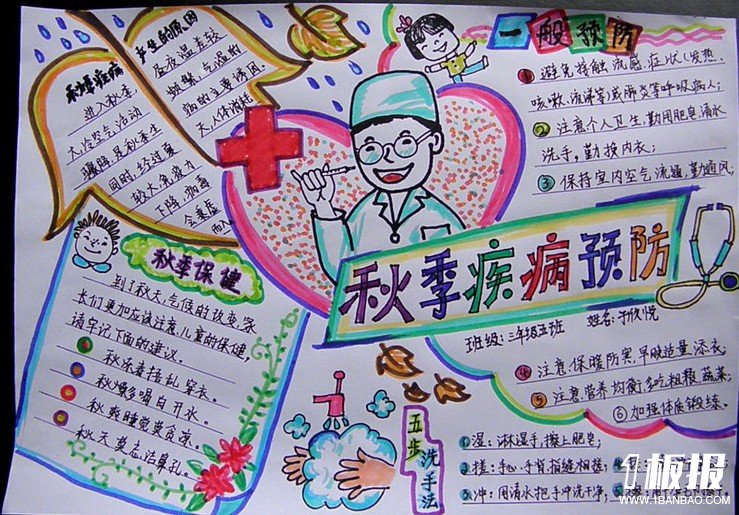 秋季疾病
进入秋季,
大冷空气活动
骤降,是秋季生
同时,经过夏
较大,免疫力
下降,病毒
会乘虚
而入
产生的原因
昼夜温差较
频繁,气温的
病的主要诱因。
天人体消耗
一般预防
避免接触流感症状(发热,
咳嗽、流涕等)或肺炎等呼吸病人;
② 注意个人卫生,勤用肥皂清水
洗手,勤换内衣;
③ 保持室内空气流通,勤通风;
秋季疾病预防
班级:三年级五班 姓名:于欣悦
④ 注意保暖防寒,早晚适量添衣;
⑤ 注意营养均衡多吃粗粮蔬菜;
⑥ 加强体质锻炼。
秋季保健
到了秋天,气候的改变,家
长们更加应该注意儿童的保健,
请牢记下面的建议。
秋冻莫捂乱穿衣。
秋燥多喝白开水。
秋爽睡觉莫贪凉。
秋天莫忘洁鼻孔。
五步洗手法
①湿:淋湿手,擦上肥皂;
②搓:手心、手背、指缝相搓
③冲:用清水把手冲洗干净;
1板报
WWW.1BANBAO.COM